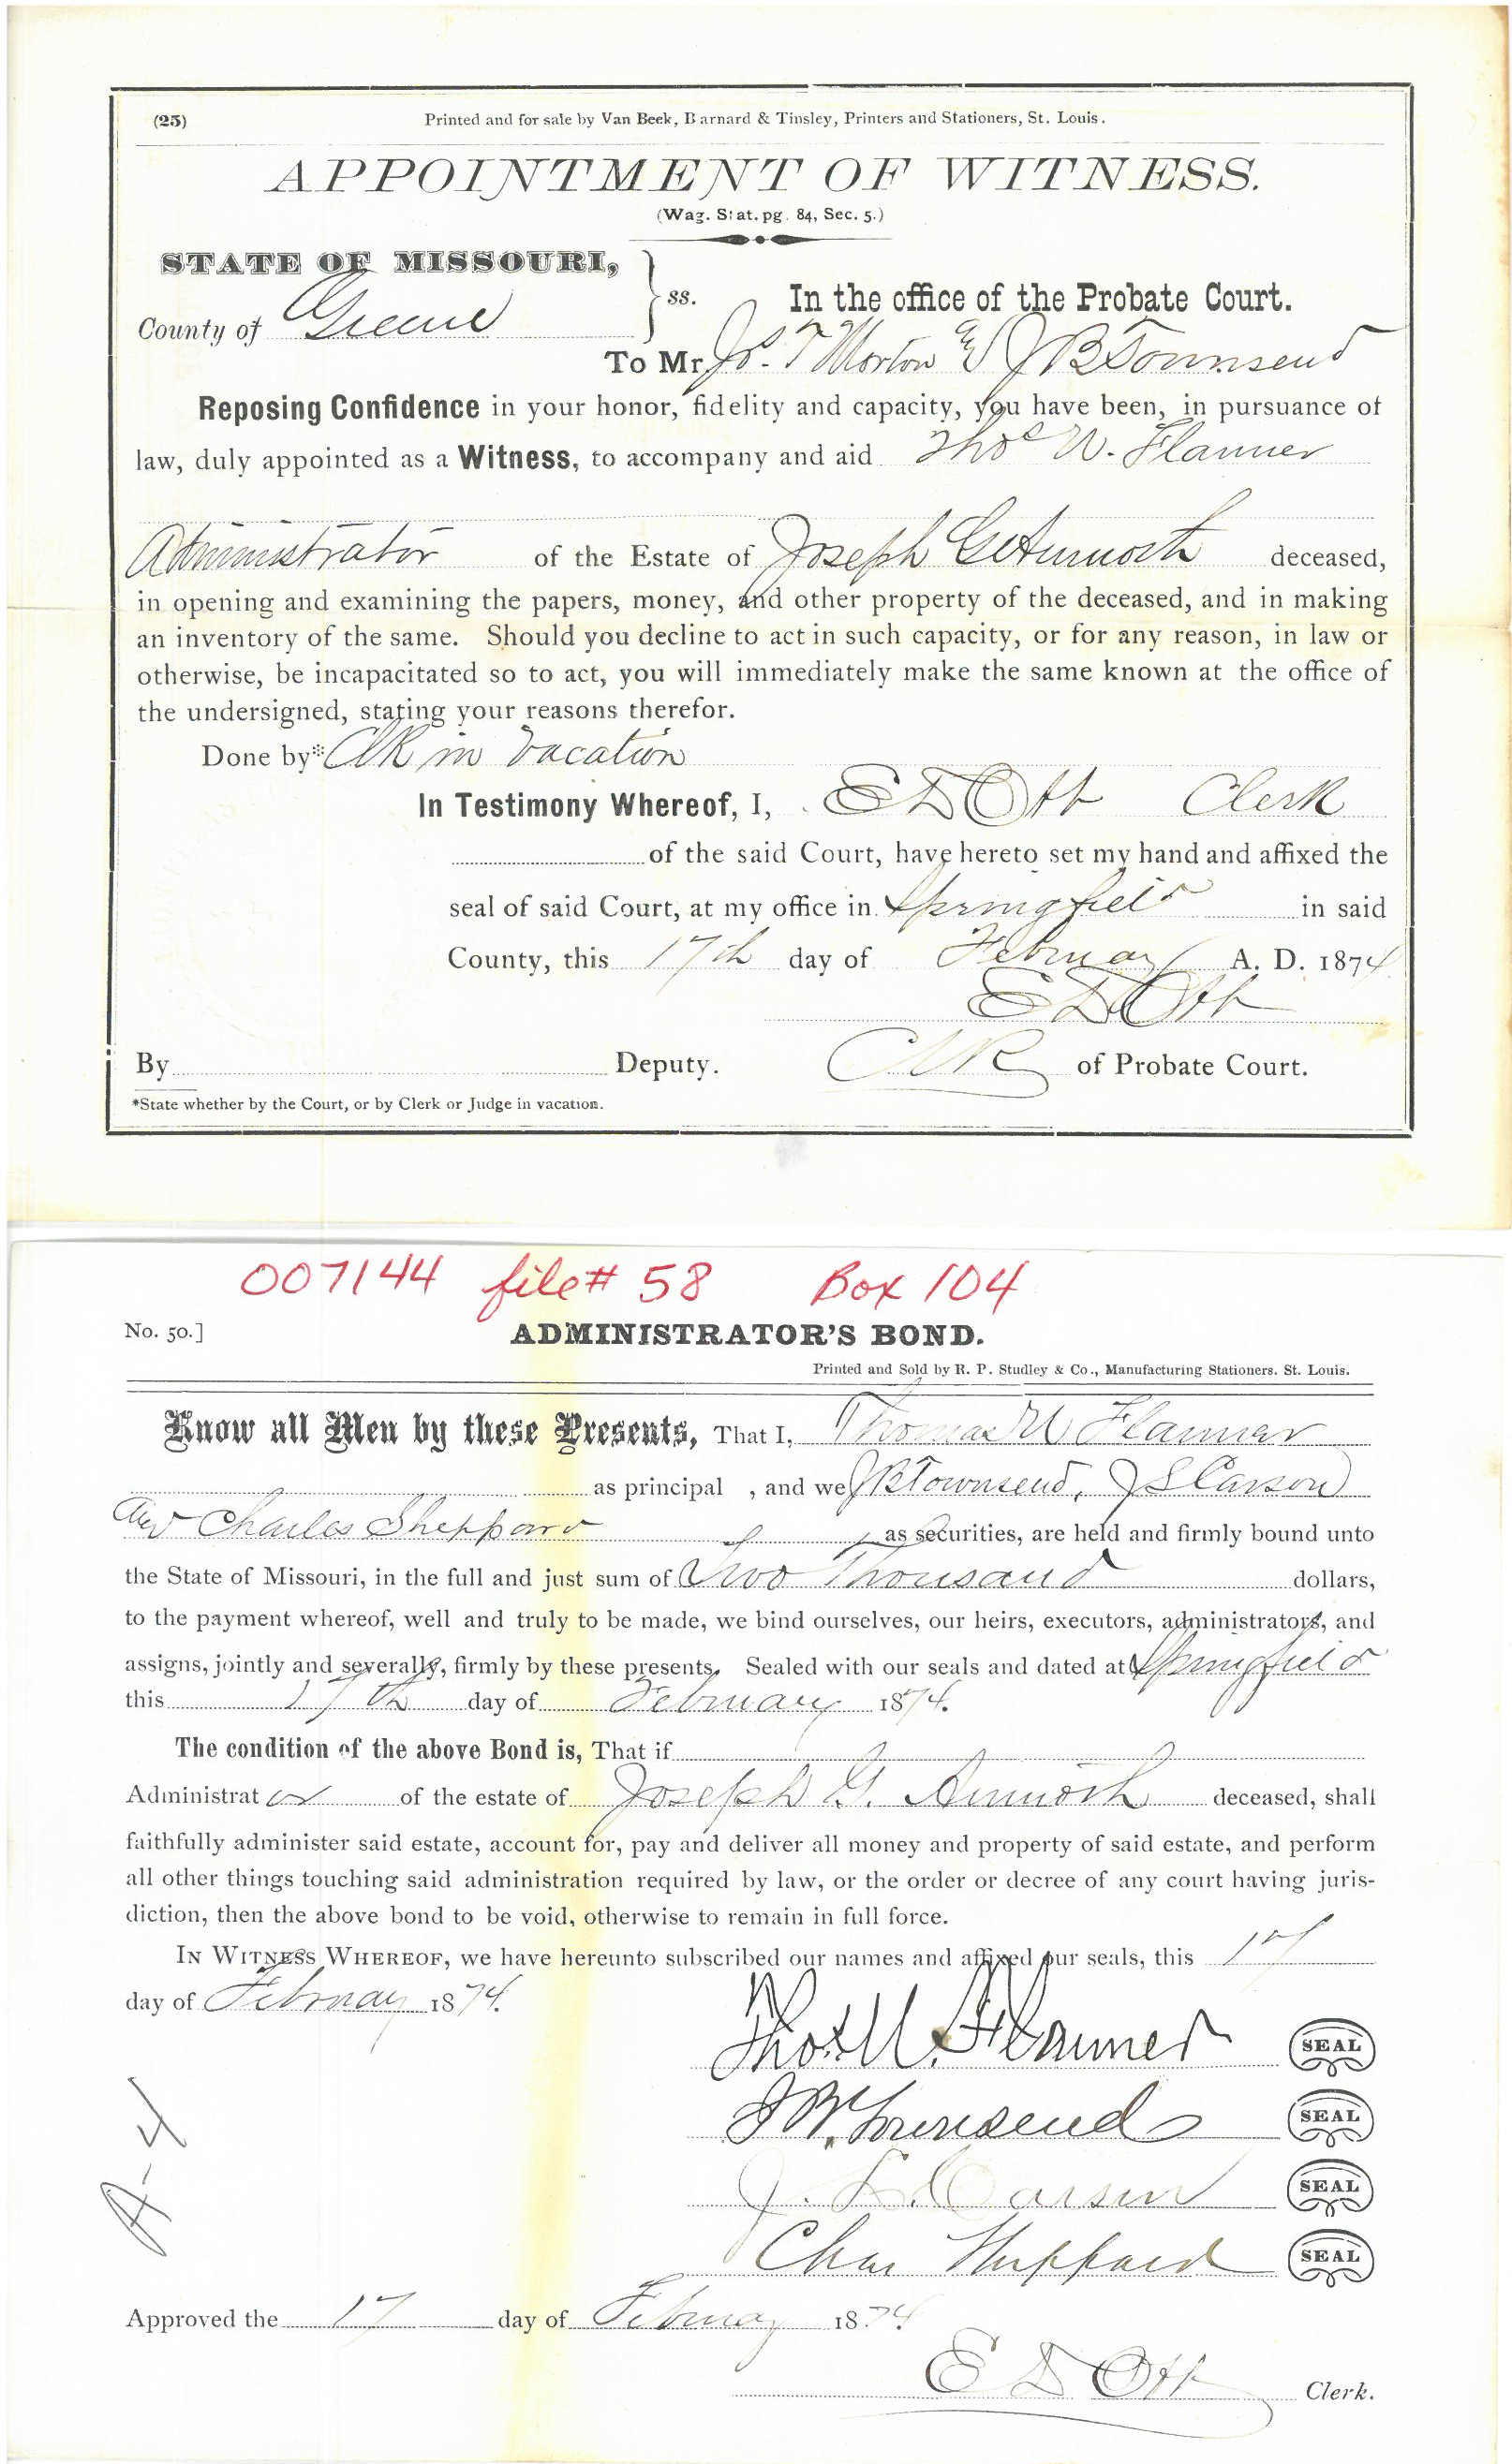 (25)
Printed and for sale by Van Beek, Barnard & Tinsley, Printers and Stationers, St. Louis.
APPOINTMENT OF WITNESS.
(Wag. Stat. pg. 84, Sec. 5.)
STATE OF MISSOURI,
County of Greene
ss.
In the office of the Probate Court.
To Mr. Jos. T Morton & J B Townsend
Reposing Confidence in your honor, fidelity and capacity, you have been, in pursuance of
law, duly appointed as a Witness, to accompany and aid Thos W. Flanner
Administrator of the Estate of Joseph G deceased,
in opening and examining the papers, money, and other property of the deceased, and in making
an inventory of the same. Should you decline to act in such capacity, or for any reason, in law or
otherwise, be incapacitated so to act, you will immediately make the same known at the office of
the undersigned, stating your reasons therefor.
Done by* Clk in vacation
In Testimony Whereof, I, E D Ott Clerk
of the said Court, have hereto set my hand and affixed the
seal of said Court, at my office in Springfield in said
County, this 17th day of February A. D. 1874
E D Ott
By Deputy. Clk of Probate Court.
*State whether by the Court, or by Clerk or Judge in vacation.
007144 file# 58 Box 104
No. 50.]
ADMINISTRATOR'S BOND.
Printed and Sold by R. P. Studley & Co., Manufacturing Stationers. St. Louis.
Know all Men by these Presents, That I, Thomas W Flanner
as principal , and we J B Townsend, J S Carson
and Charles Sheppard as securities, are held and firmly bound unto
the State of Missouri, in the full and just sum of Two Thousand dollars,
to the payment whereof, well and truly to be made, we bind ourselves, our heirs, executors, administrators, and
assigns, jointly and severally, firmly by these presents. Sealed with our seals and dated at Springfield
this 17th day of February 1874.
The condition of the above Bond is, That if
Administrator of the estate of Joseph G. deceased, shall
faithfully administer said estate, account for, pay and deliver all money and property of said estate, and perform
all other things touching said administration required by law, or the order or decree of any court having juris-
diction, then the above bond to be void, otherwise to remain in full force.
IN WITNESS WHEREOF, we have hereunto subscribed our names and affixed our seals, this 17
day of February 1874.
Thos. W. Flanner SEAL
J B. Townsend SEAL
J. S. Carson SEAL
Chas Sheppard SEAL
A-4
Approved the 17 day of February 1874
E D Ott Clerk.